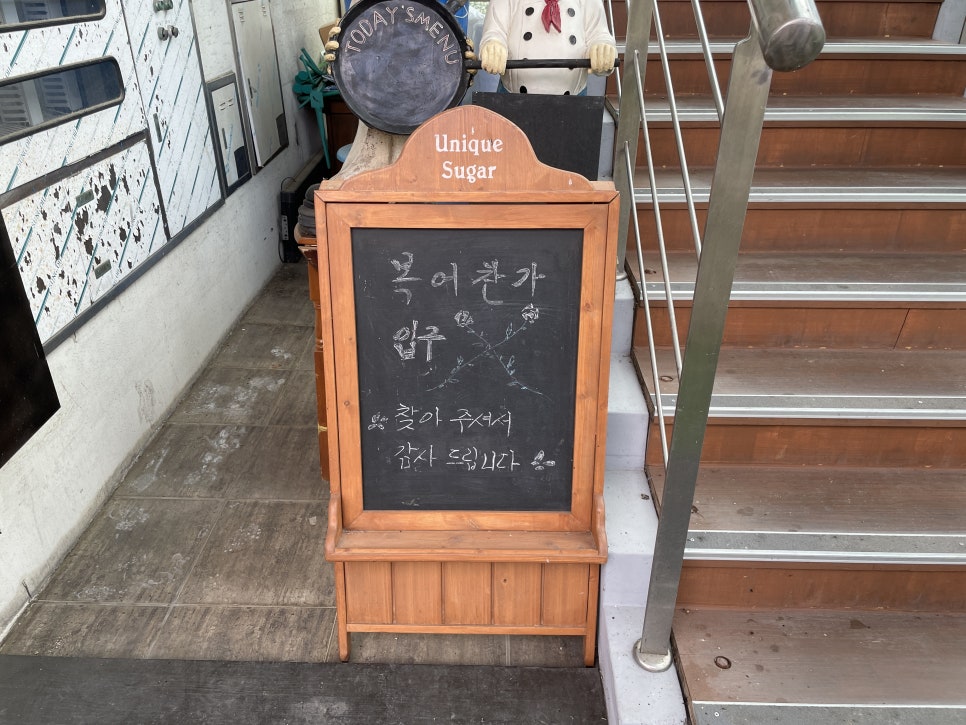 TODAY'S MENU
Unique
Sugar
복어찬가
입구
찾아 주셔서
감사 드립니다